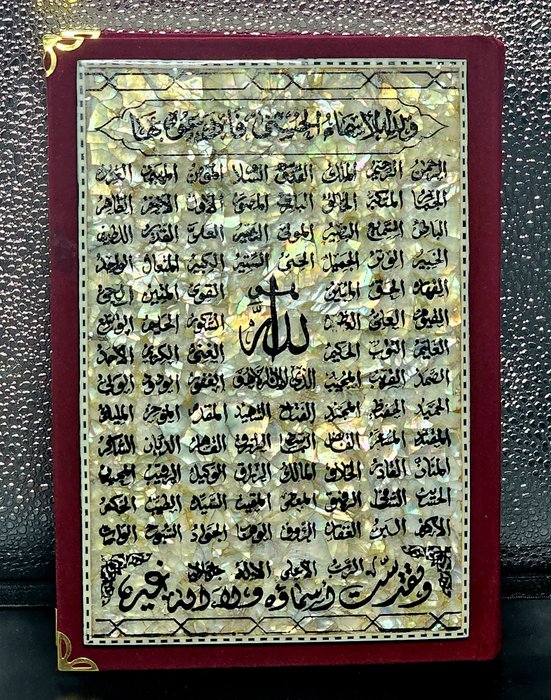 ولله الأسماء الحسنى فادعوه بها
الرحمن الرحيم الملك القدوس السلام المؤمن المهيمن العزيز
الجبار المتكبر الخالق البارئ المصور الأول الآخر الظاهر
الباطن السميع البصير المولى النصير العفو القدير اللطيف
الخبير الوتر الجميل الحيي الستير الكبير المتعال الواحد
القهار الحق المبين هو القوي المتين الحي
القيوم العلي العظيم الله الشكور الحليم الواسع
العليم التواب الحكيم الغني الكريم الأحد
الصمد القريب المجيب الذي لا إله إلا هو الغفور الودود الولي
الحميد الحفيظ المجيد الفتاح الشهيد المقدم المؤخر المليك
المقتدر المسعر القابض الباسط الرازق القاهر الديان الشاكر
المنان القادر الخلاق المالك الرزاق الوكيل الرقيب المحسن
الحسيب الشافي الرفيق المعطي المقيت السيد الطيب الحكم
الأكرم البر الغفار الرؤوف الوهاب الجواد السبوح الوارث
الرب الأعلى الإله جل جلاله
وتقدست أسماؤه ولا إله غيره